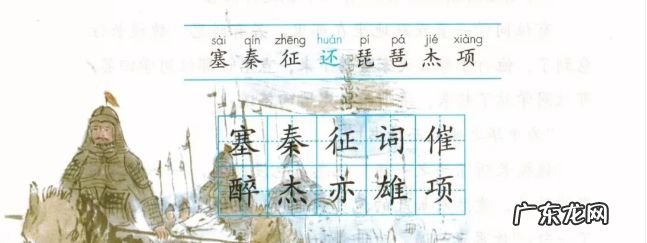 sài qín zhēng huán pí pá jié xiàng
塞 秦 征 还 琵 琶 杰 项
塞 秦 征 词 催
醉 杰 亦 雄 项
广东龙网